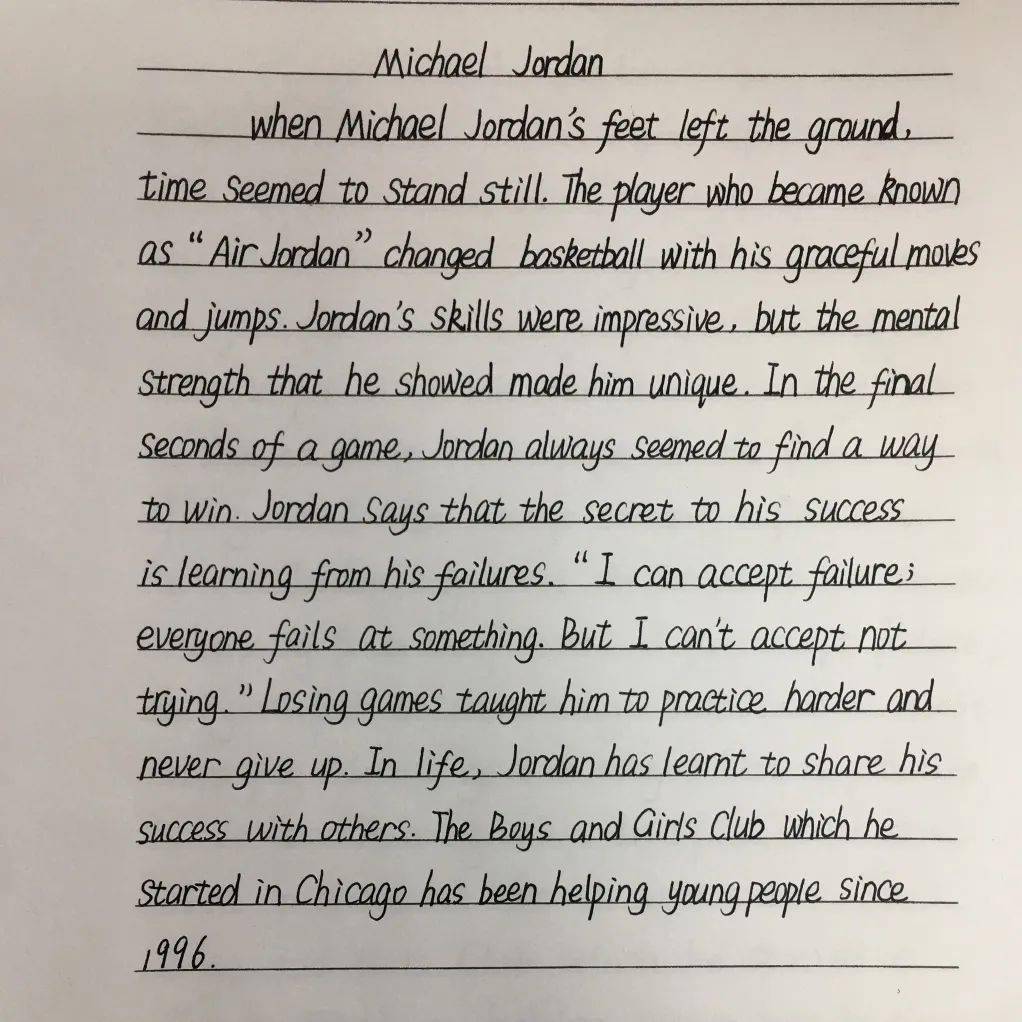 Michael Jordan
when Michael Jordan's feet left the ground,
time seemed to stand still. The player who became known
as “Air Jordan” changed basketball with his graceful moves
and jumps. Jordan's skills were impressive, but the mental
strength that he showed made him unique. In the final
seconds of a game, Jordan always seemed to find a way
to win. Jordan says that the secret to his success
is learning from his failures. “I can accept failure;
everyone fails at something. But I can't accept not
trying.” Losing games taught him to practice harder and
never give up. In life, Jordan has learnt to share his
success with others. The Boys and Girls Club which he
started in Chicago has been helping young people since
1996.